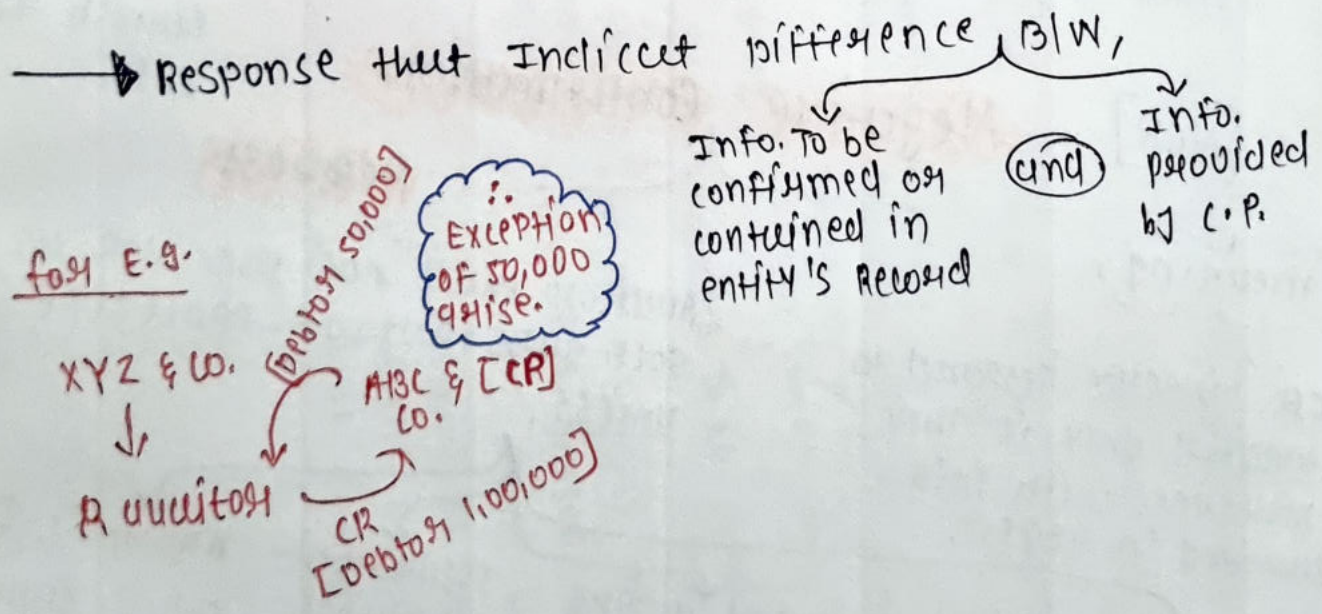 Response that Indicat Difference B/W,
Info. To be
confirmed or
contained in
entity's Record
and
Info.
provided
by C.P.
for E.g.
[Debtor 50,000]
∴
Exception
of 50,000
arise.
XYZ & Co.
ABC & [CP]
Co.
Auditor
CR
[Debtor 1,00,000]